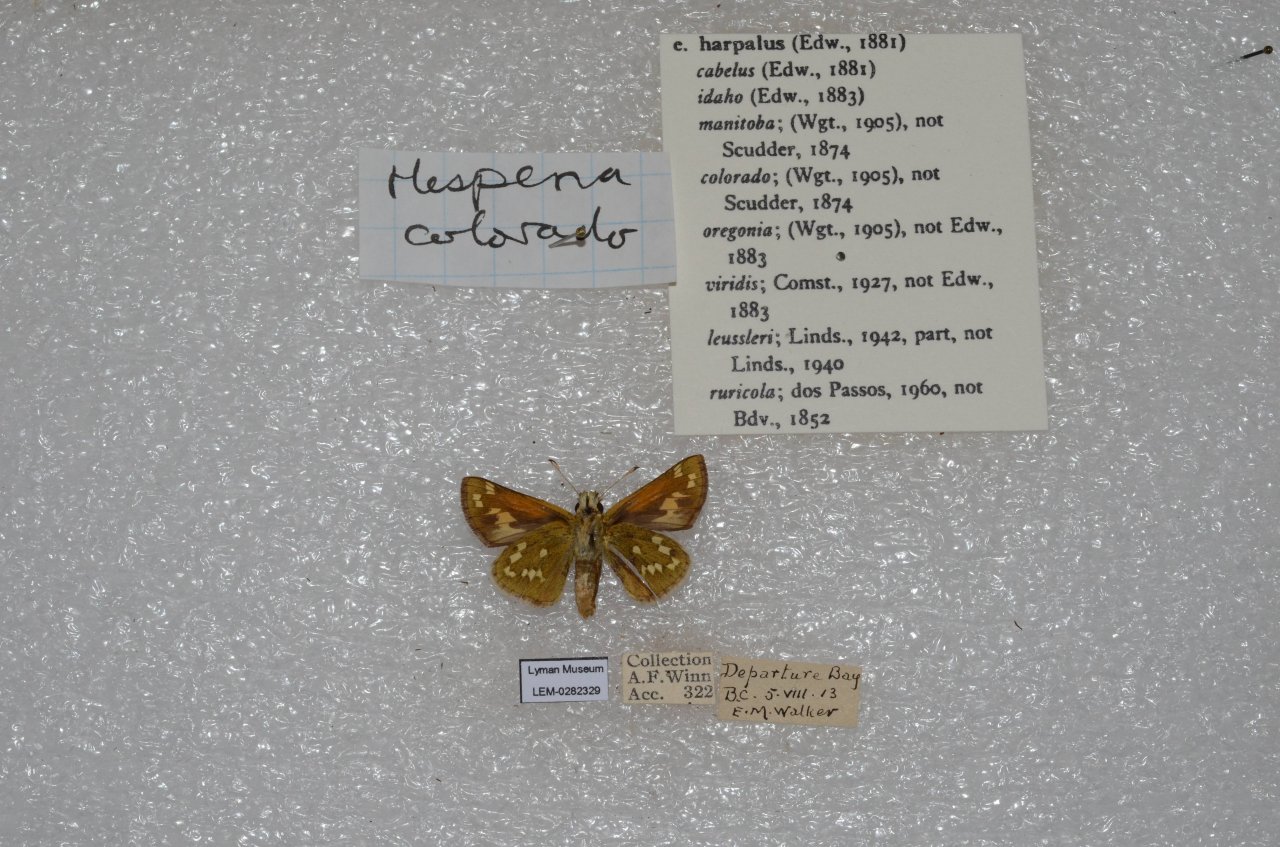 Hesperia
colorado
e. harpalus (Edw., 1881)
cabelus (Edw., 1881)
idaho (Edw., 1883)
manitoba; (Wgt., 1905), not
Scudder, 1874
colorado; (Wgt., 1905), not
Scudder, 1874
oregonia; (Wgt., 1905), not Edw.,
1883
viridis; Comst., 1927, not Edw.,
1883
leussleri; Linds., 1942, part, not
Linds., 1940
ruricola; dos Passos, 1960, not
Bdv., 1852
Lyman Museum
LEM-0282329
Collection
A.F.Winn
Acc. 322
Departure Bay
B.C. 5.VIII.13
E.M.Walker